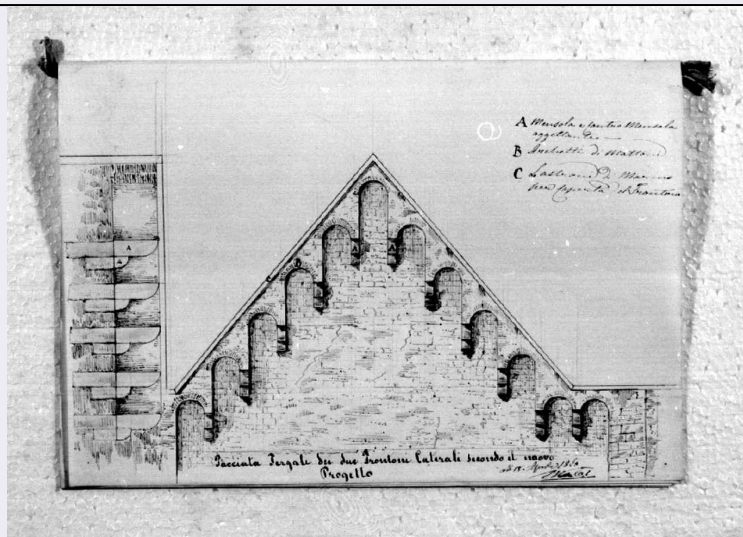 A Mensola e contro Mensola
aggettante
B Archetti di Mattoni
C Lastroni di Marmo
per Coperta al Frontone
A
A
A
A
C
B
Facciata Tergale dei due Frontoni Laterali secondo il nuovo
Progetto